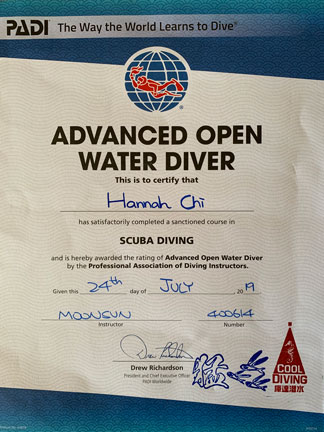 PADI The Way the World Learns to Dive®
®
ADVANCED OPEN
WATER DIVER
This is to certify that
Hannah Chi
has satisfactorily completed a sanctioned course in
SCUBA DIVING
and is hereby awarded the rating of Advanced Open Water Diver
by the Professional Association of Diving Instructors.
Given this 24th day of JULY, 2019
MOONSUN 400614
Instructor Number
Drew Richardson
President and Chief Executive Officer
PADI Worldwide
COOL
DIVING